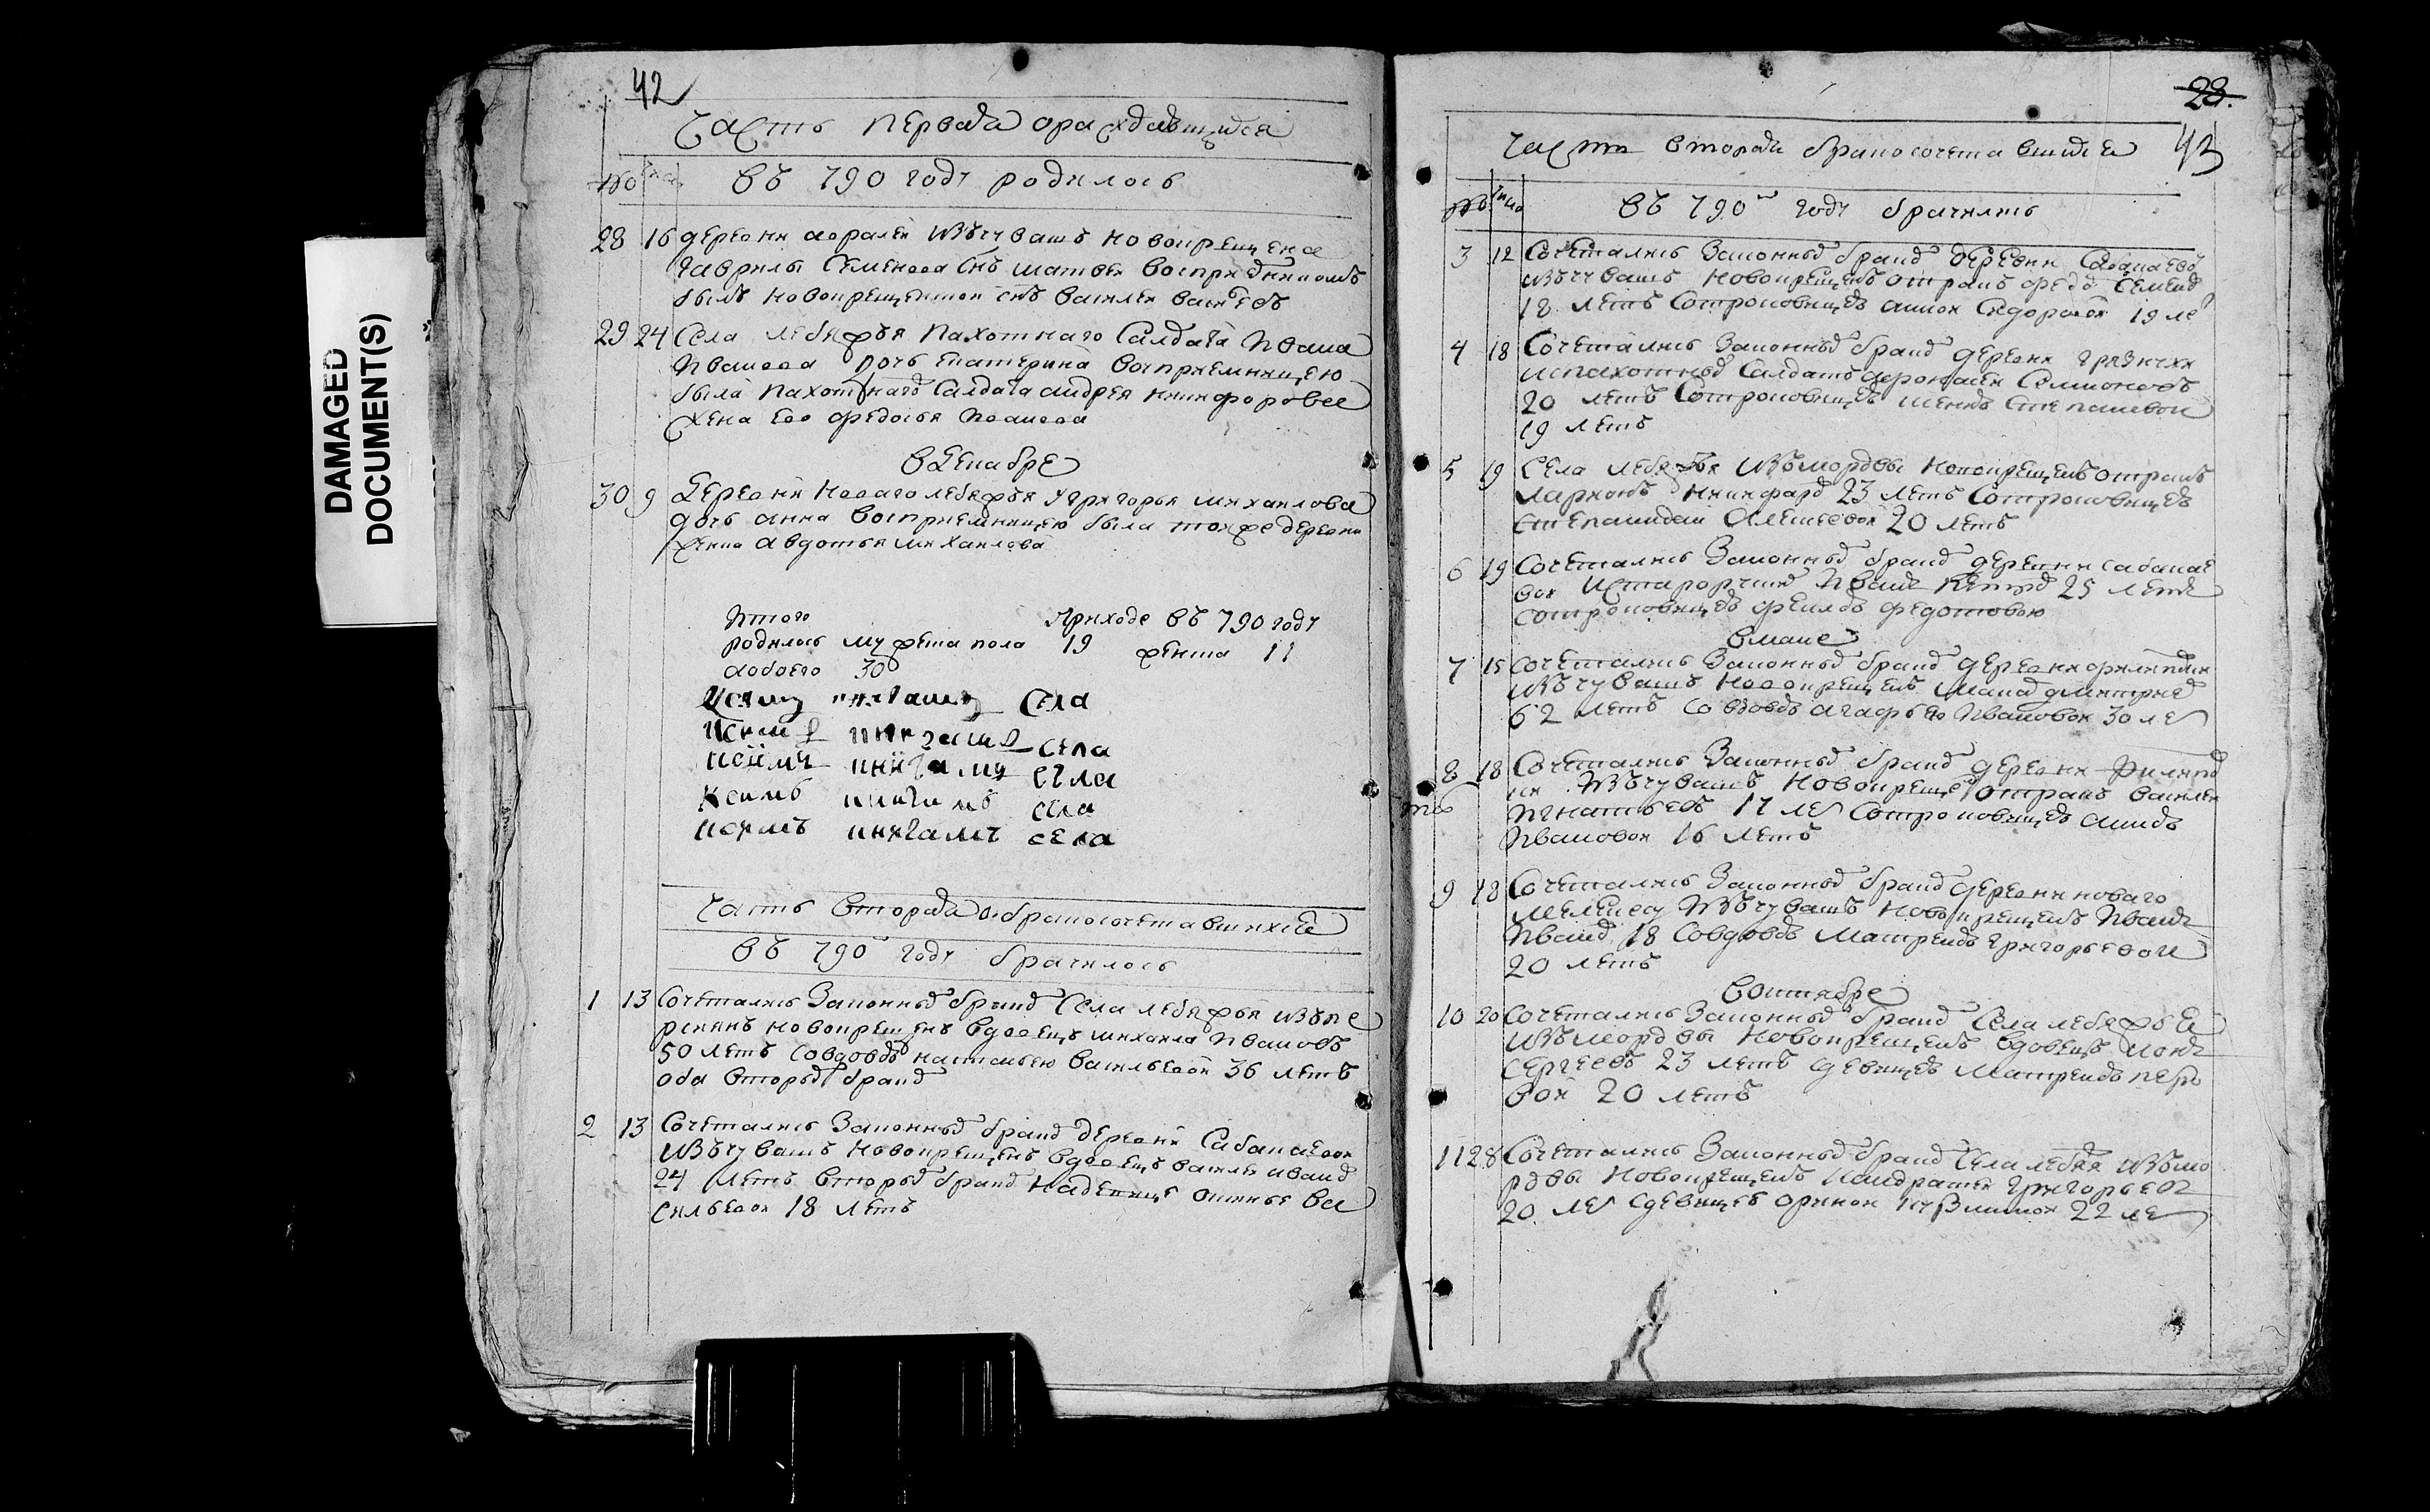 DAMAGED
DOCUMENT(S)
42
Часть первая о раждающихся
№ число
въ 790 годѣ родилось
28 16 деревни изъ чувашъ новокрещена
Гаврилы Семенова снъ Матвей восприемникомъ
былъ новокрещенской снъ Василей Васильевъ
29 24 Села Лебяжья пахотнаго салдата Ивана
Иванова дочь Екатерина восприемницею
была пахотнаго салдата Андрея Никифорова
жена ево Федосья Иванова
в Декабре
30 9 Деревни Новаго Лебяжья у Григорья Михаилова
дочь Анна восприемницею была тоя же деревни
жена Авдотья Михаилова
Итого приходе въ 790 годѹ
родилось мужеска пола 19 женска 11
а обоего 30
Ксимъ книгамъ села
Ксимъ книгамъ села
Ксимъ книгамъ села
Ксимъ книгамъ села
Ксимъ книгамъ села
Часть вторая о бракосочетавшихся
въ 790 годѹ брачилось
1 13 Сочетались законнымъ бракомъ села Лебяжья изъ
новокрещенъ вдовецъ Михаила Ивановъ
50 летъ со вдовъ Наталью Васильевой 36 летъ
оба вторымъ бракомъ
2 13 Сочетались законнымъ бракомъ деревни Сабанаевой
изъ чувашъ новокрещенъ вдовецъ Василей Иванов
24 летъ вторымъ браком на девице Ва
сильевой 18 летъ
28.
43
Часть вторая бракосочетавшихся
№ число
въ 790м годѹ брачились
3 12 Сочетались законным браком деревни Сабанаевой
изъ чувашъ новокрещенъ отрокъ Федор Семенов
18 летъ с отроковицею Анной Сидоровой 19 ле
4 18 Сочетались законным браком деревни Грязнухи
ис пахотных салдатъ Семионовъ
20 летъ с отроковицею Степановой
19 летъ
5 19 Села Лебяжья изъ мордвы новокрещенъ отрокъ
Ларионъ Никифоров 23 летъ с отроковицею
Степанидой Алексеевой 20 летъ
6 19 Сочетались законным браком деревни Сабанае
вой Иванъ Петров 25 летъ
с отроковицею Федотовою
в мае
7 15 Сочетались законным браком деревни Филипкин
изъ чувашъ новокрещенъ Дмитриев
62 летъ со вдовъ Агафьею Ивановой 30 ле
8 18 Сочетались законным браком деревни Филипк
ин изъ чувашъ новокреще отрокъ Василей
Игнатьевъ 17 ле с отроковицею Анною
Ивановой 16 летъ
9 18 Сочетались законным браком деревни Новаго
Мелекесу изъ чувашъ новокрещенъ Иванъ
Иванов 18 со вдовъ Матреной Григорьевой
20 летъ
в октябре
10 20 Сочетались законным браком села Лебяжья
изъ мордвы новокрещенъ вдовецъ
Сергеевъ 23 летъ з девицею Матреной Петро
вой 20 летъ
11 28 Сочетались законным браком села Лебяжья изъ мо
рдвы новокрещенъ Кандратей Григорьевъ
20 ле з девицею Ориной Кузминой 22 ле